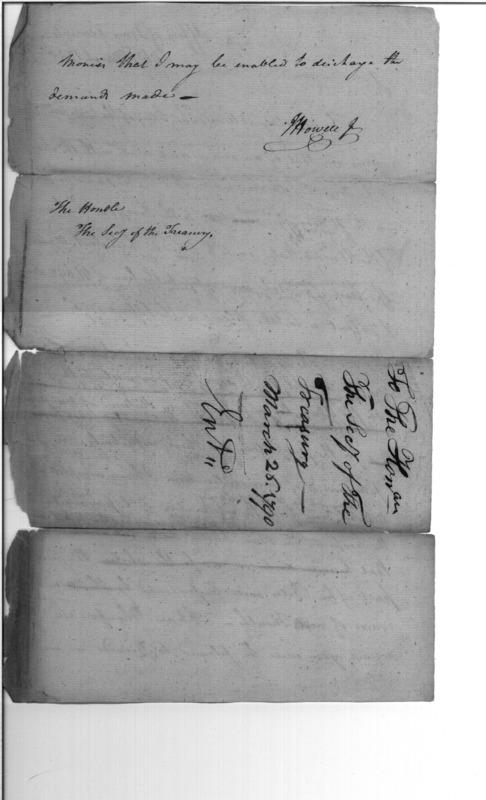 Monies that I may be enabled to discharge the
demands made —
JHowell J
The Honble
The Secy of the Treasury.
To The Honau
The Secy of the
Treasury —
March 25. 1790
Entd